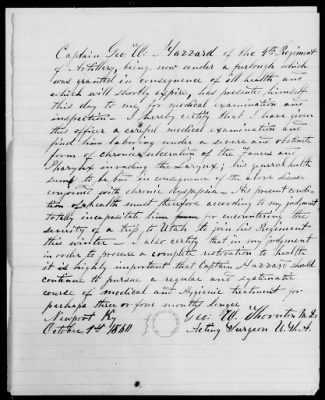 Captain Geo. W. Hazzard of the 4th Regiment
of Artillery, being now under a furlough which
was granted in consequence of ill health, and
which will shortly expire, has presented himself
this day to me, for medical examination and
inspection. I hereby certify that I have given
this officer a careful medical examination and
find him laboring under a severe and obstinate
form of chronic ulceration of the Fauces and
Pharynx invading the Larynx; his general health
to be bad in consequence of the above disease
conjoined with chronic dyspepsia. His present condi-
tion of health must therefore according to my judgment
totally incapacitate him for encountering the
severity of a trip to Utah to join his Regiment
this winter. I also certify that in my judgment
in order to procure a complete restoration to health
it is highly important that Captain Hazzard should
continue to pursue a regular and systematic
course of medical and Hygienic treatment for
perhaps three or four months longer
Newport Ky Geo. W. Thornton M.D.
October 1st 1860 Acting Surgeon U.S.A.